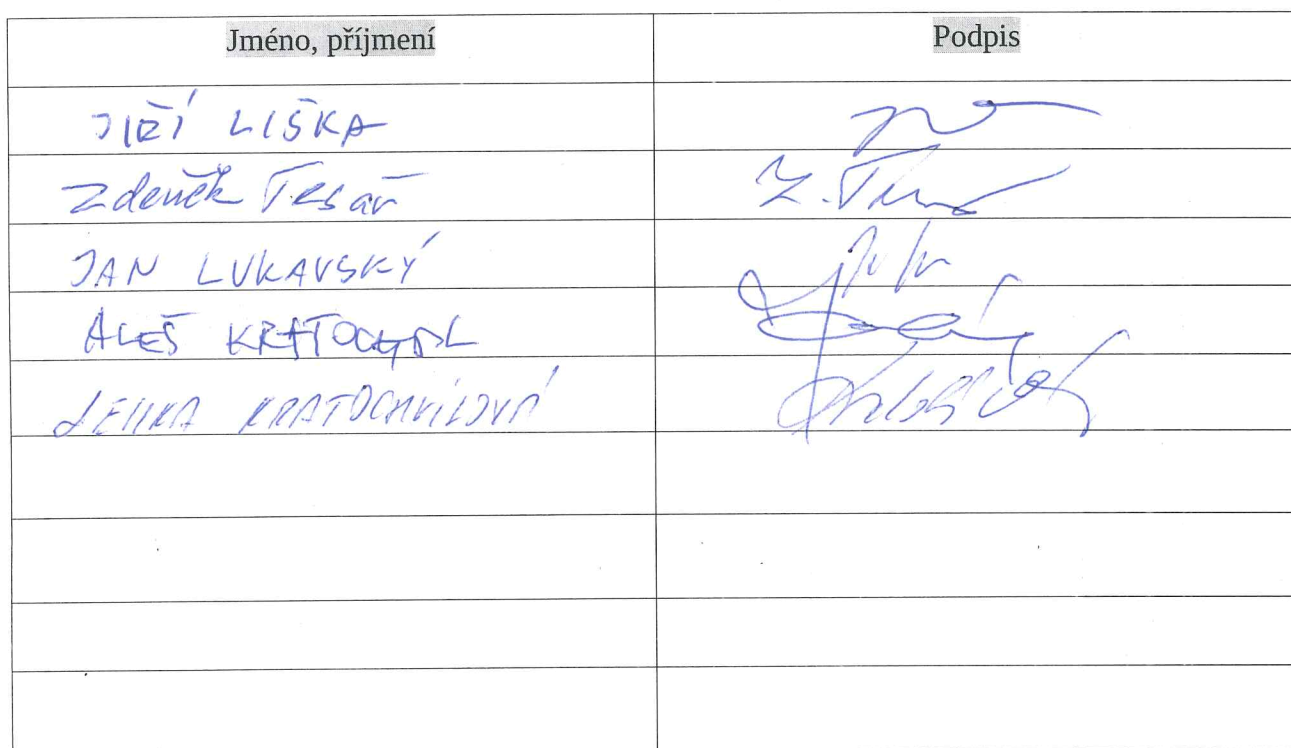 Jméno, příjmení Podpis
JIŘÍ LIŠKA
Zdeněk Tesař Z.
JAN LUKAVSKÝ
ALEŠ KRATOCHVÍL
LENKA KRATOCHVÍLOVÁ